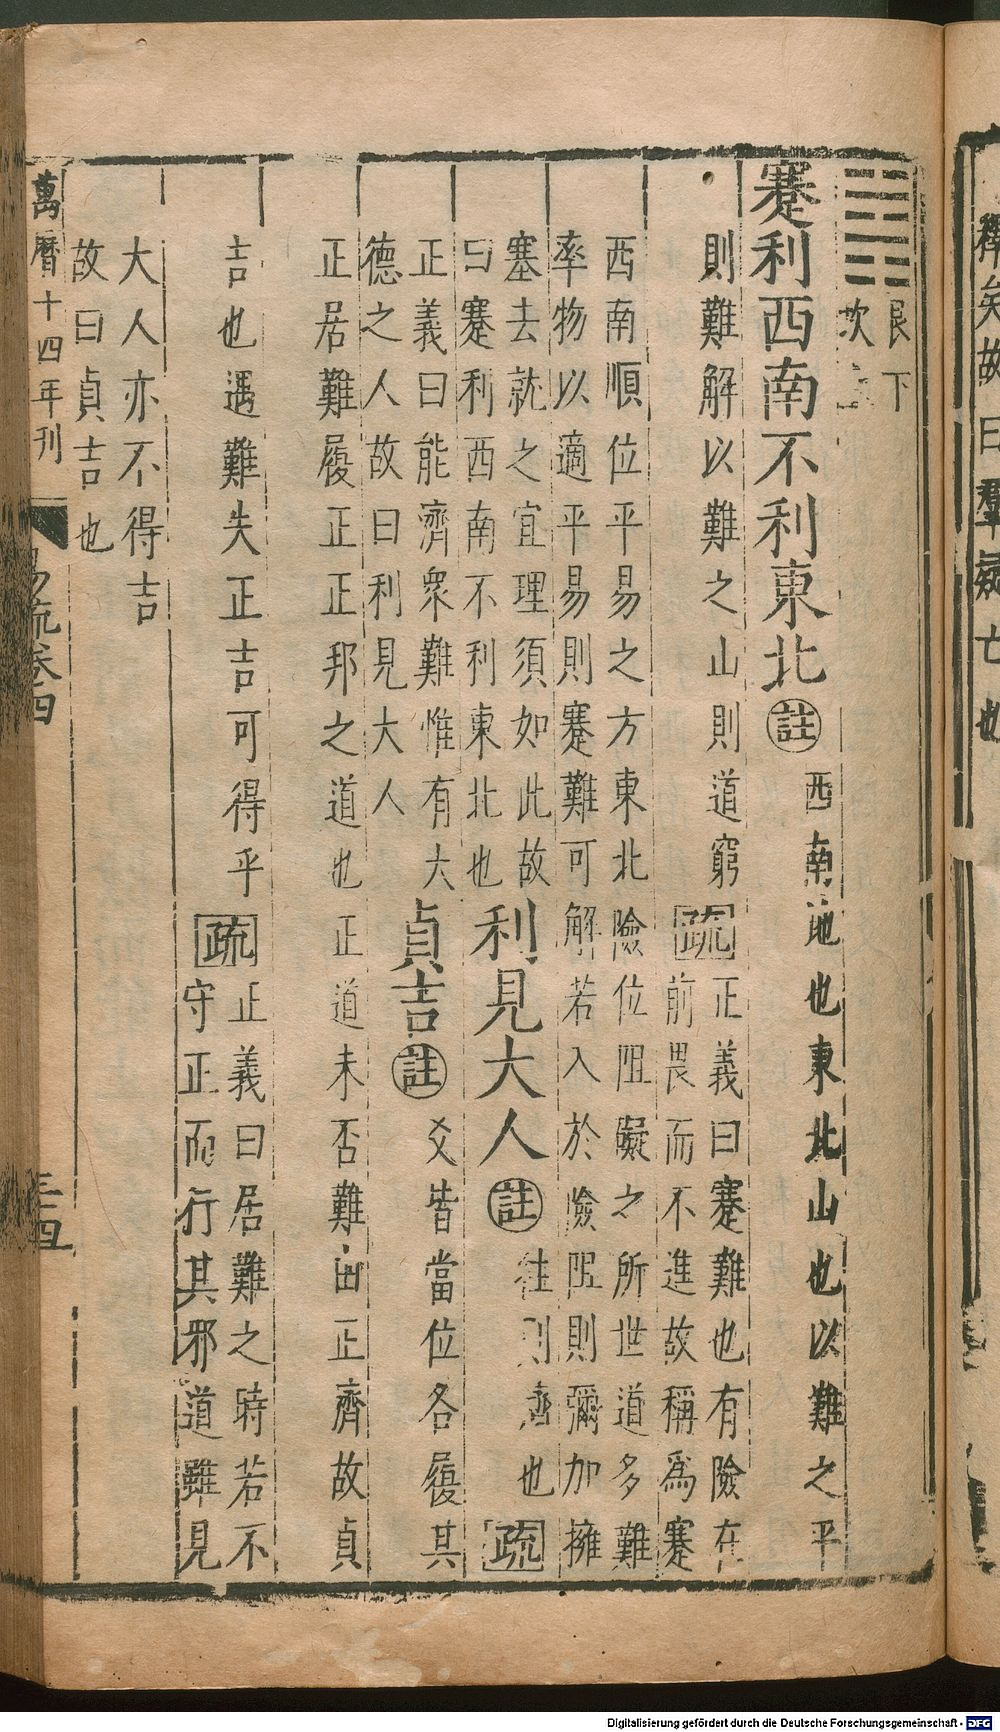 釋矣故曰羣疑亡也
艮下
坎上
蹇利西南不利東北註西南地也東北山也以難之平
則難解以難之山則道窮疏正義曰蹇難也有險在
前畏而不進故稱爲蹇
西南順位平易之方東北險位阻礙之所世道多難
率物以適平易則蹇難可解若入於險阻則彌加擁
塞去就之宜理須如此故
曰蹇利西南不利東北也利見大人註往則濟也疏
正義曰能濟衆難惟有大
德之人故曰利見大人
貞吉註爻皆當位各履其
正居難履正正邦之道也正道未否難由正濟故貞
吉也遇難失正吉可得乎疏正義曰居難之時若不
守正而行其邪道雖見
大人亦不得吉
故曰貞吉也
萬曆十四年刊
易疏卷四
三四
Digitalisierung gefördert durch die Deutsche Forschungsgemeinschaft - DFG